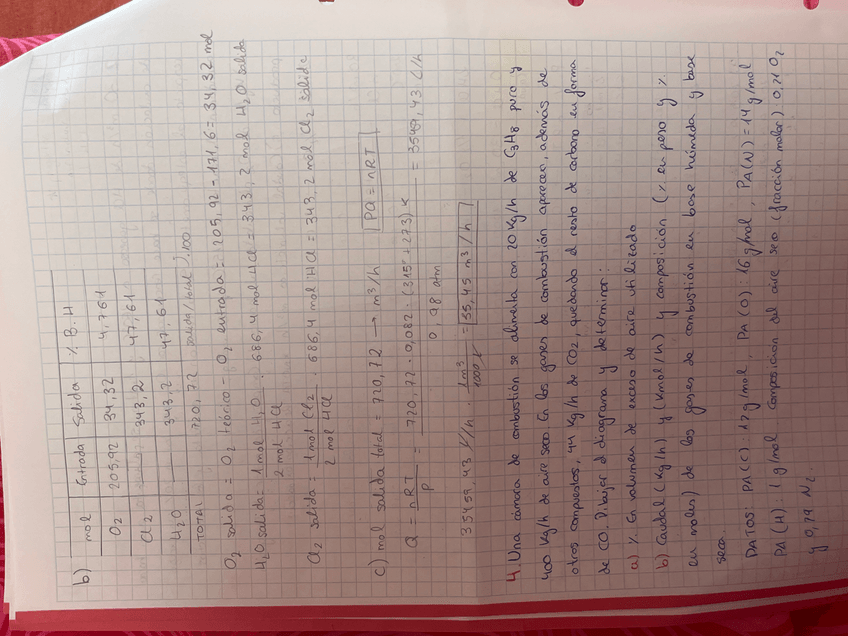 b)
mol Entrada Salida % B.H
O2 205,92 34,32 4,761
Cl2 343,2 47,61
H2O 343,2 47.61
TOTAL 720,72 salida/total).100
O2 salida = O2 teórico - O2 entrada = 205,92 - 171,6 = 34,32 mol
H2O salida = 1 mol H2O / 2 mol HCl · 686,4 mol HCl = 343,2 mol H2O salida
Cl2 salida = 1 mol Cl2 / 2 mol HCl 686,4 mol HCl = 343.2 mol Cl2 salida
c) mol salida total = 720,72 → m³/h PQ = nRT
Q = nRT / P = 720,72 · 0,082 · (315º + 273) K / 0,98 atm = 3549,43 L/h
35459,43 L/h · 1m³ / 1000 L = 35,45 m³/h
4. Una cámara de combustión se alimenta con 20 Kg/h de C3H8 puro y
400 Kg/h de aire seco. En los gases de combustión aparecen, además de
otros compuestos, 44 Kg/h de CO2, quedando el resto de carbono en forma
de CO. Dibujar el diagrama y determinar:
a) % En volumen de exceso de aire utilizado
b) Caudal (Kg/h) y (Kmol/h) y composición (% en peso y %
en moles) de los gases de combustión en base húmeda y base
seca.
DATOS: PA(C): 12 g/mol, PA(O). 16 g/mol, PA(N) = 14 g/mol
PA(H): 1 g/mol Composición del aire seco (fracción molar): 0,21 O2
y 0,79 N2.